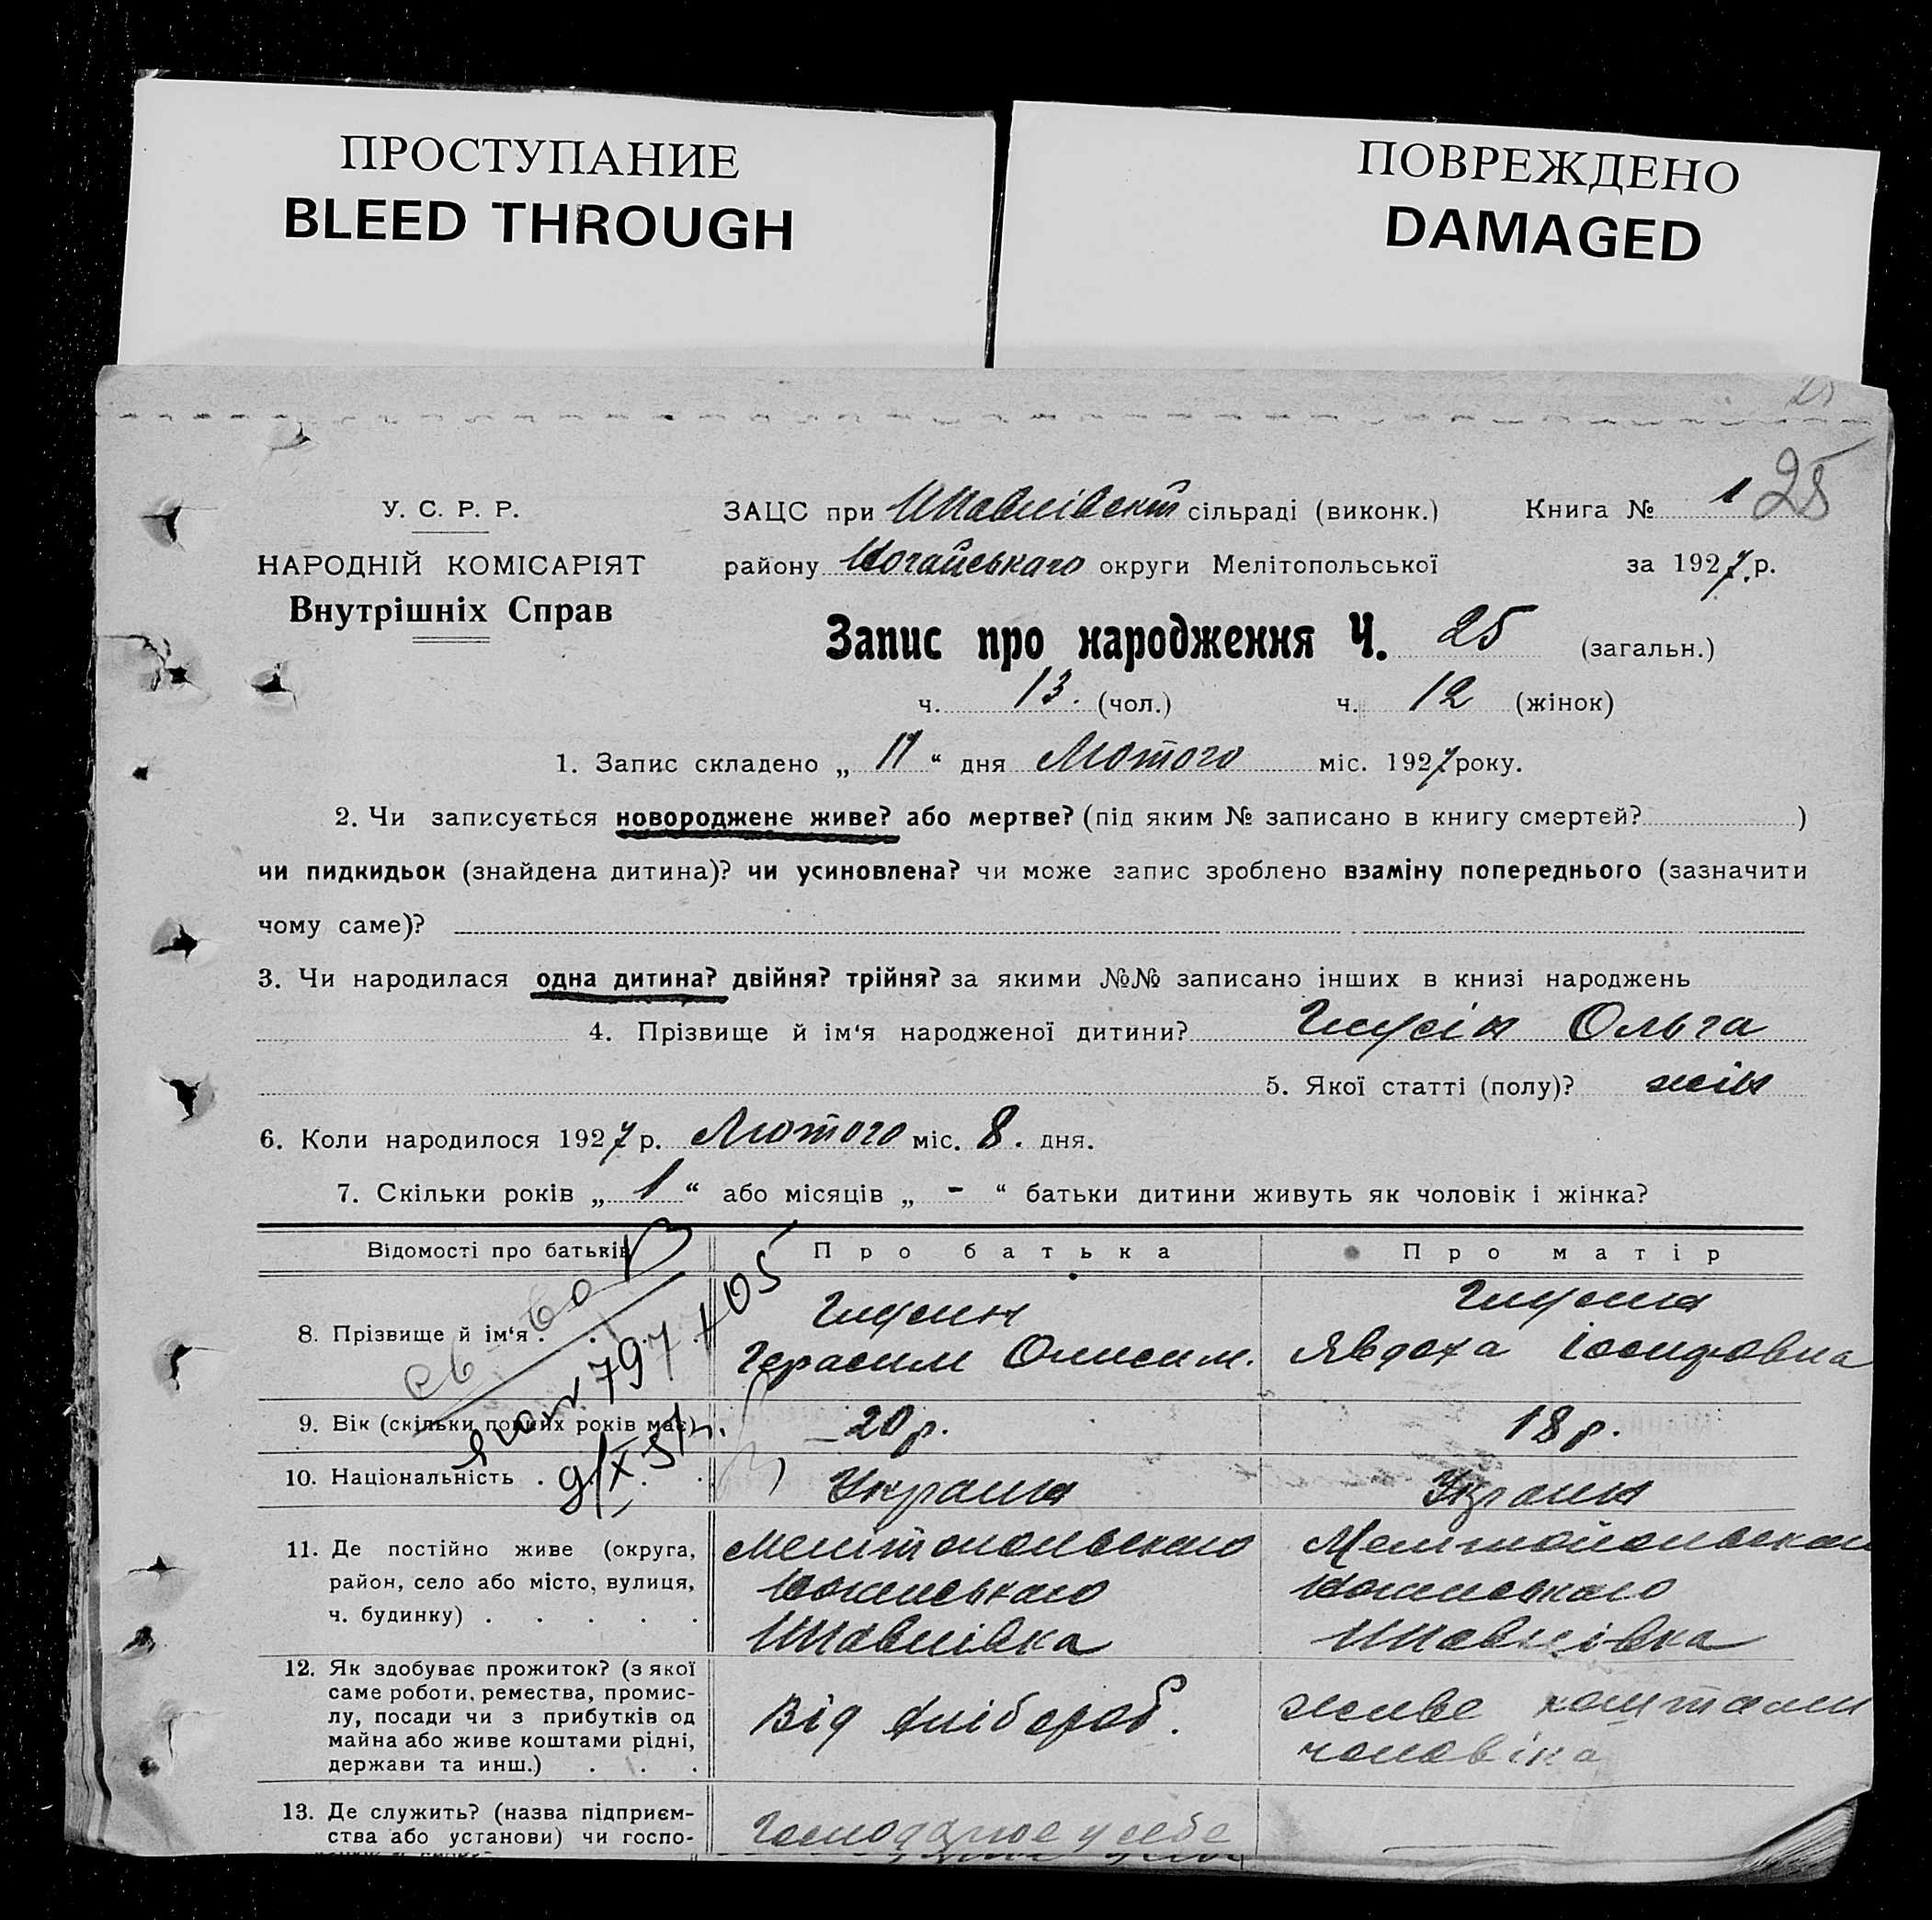 ПРОСТУПАНИЕ
BLEED THROUGH
ПОВРЕЖДЕНО
DAMAGED
25
У. С. Р. Р.
НАРОДНІЙ КОМІСАРІЯТ
Внутрішніх Справ
ЗАЦС при сільраді (виконк.) Книга № 1
району Ногайськаго округи Мелітопольської за 1927 р.
Запис про народження Ч. 25 (загальн.)
ч. 13. (чол.) ч. 12 (жінок)
1. Запис складено „ 11 “ дня Лютого міс. 1927 року.
2. Чи записується новороджене живе? або мертве? (під яким № записано в книгу смертей? )
чи пидкидьок (знайдена дитина)? чи усиновлена? чи може запис зроблено взаміну попереднього (зазначити
чому саме)?
3. Чи народилася одна дитина? двійня? трійня? за якими №№ записано інших в книзі народжень
4. Прізвище й ім‘я народженої дитини? Ольга
5. Якої статті (полу)? жін
6. Коли народилося 1927 р. Лютого міс. 8. дня.
7. Скільки років „ 1 “ або місяців „ - “ батьки дитини живуть як чоловік і жінка?
Відомості про батьків
Про батька
Про матір
8. Прізвище й ім‘я .
Герасим Онисим.
Явдоха Іосиповна
9. Вік (скільки повних років має)
20 р.
18 р.
10. Національність .
Украин
11. Де постійно живе (округа,
район, село або місто, вулиця,
ч. будинку) . . . . .
12. Як здобуває прожиток? (з якої
саме роботи, ремества, промис-
лу, посади чи з прибутків од
майна або живе коштами рідні,
держави та инш.) . . .
Від хлібороб.
живе коштами
чоловіка
13. Де служить? (назва підприєм-
ства або установи) чи госпо-
у себе